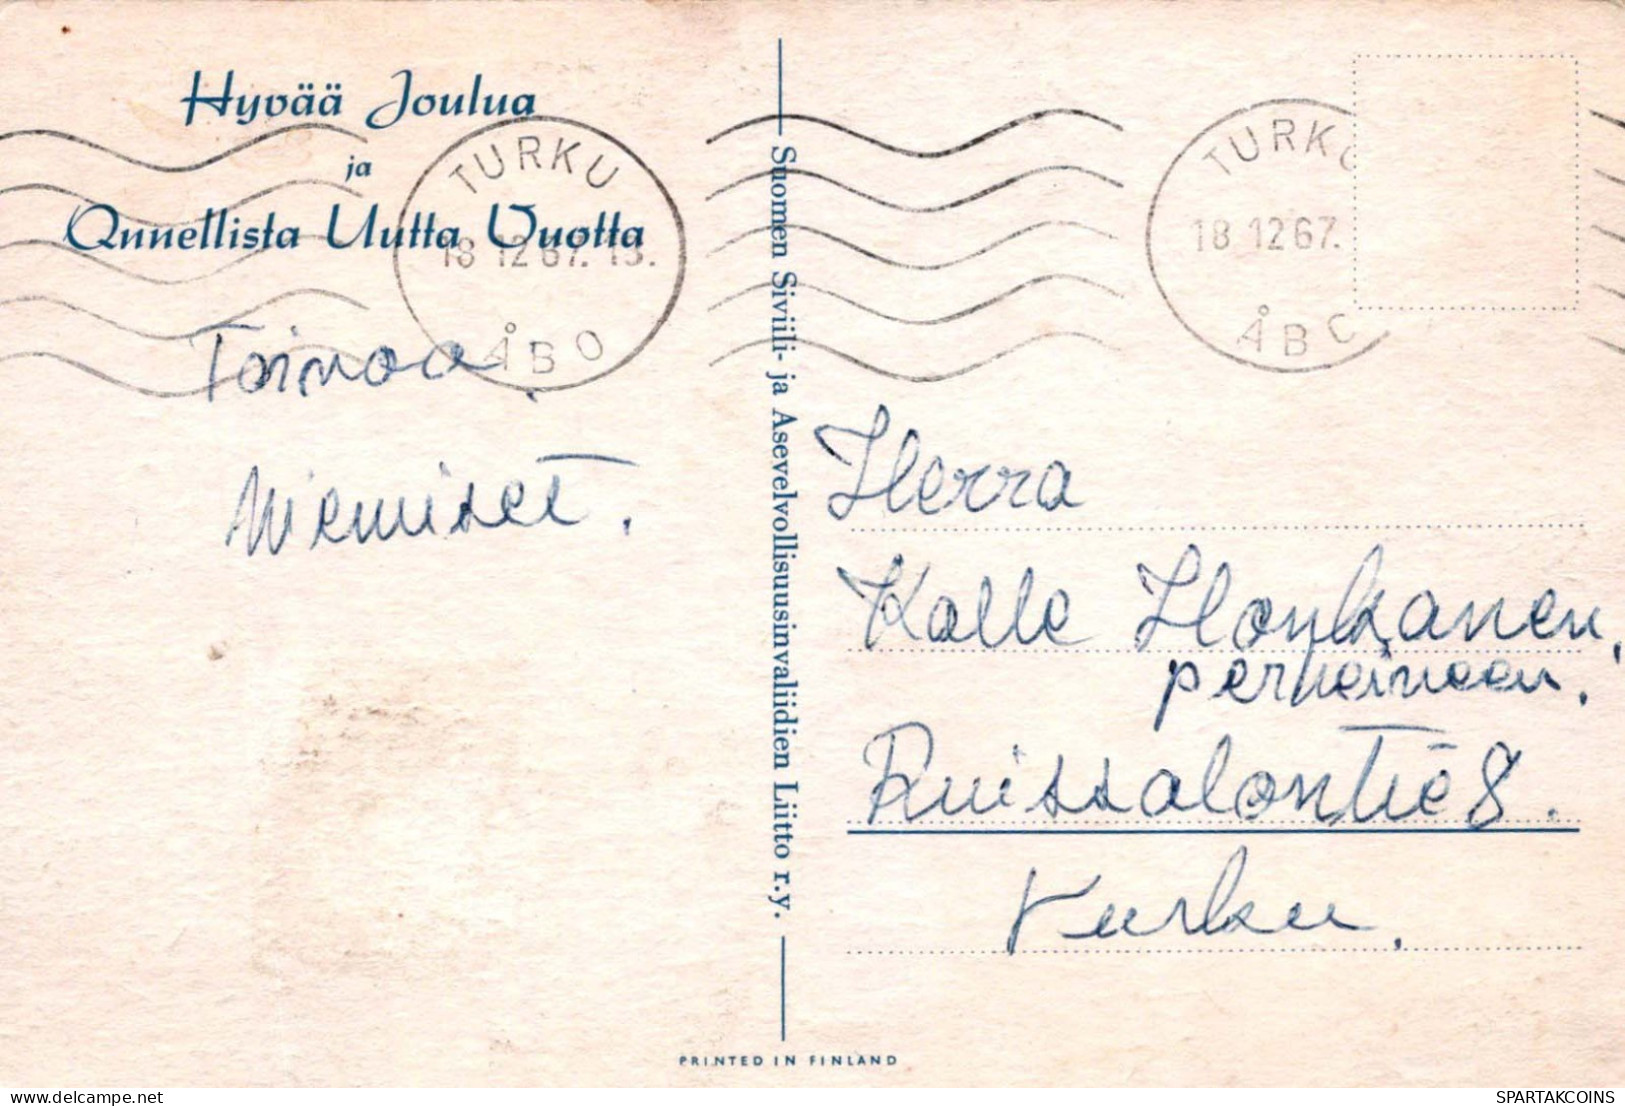 Hyvää Joulua
ja
Onnellista Uutta Vuotta
TURKU
18 12 67. 13.
ÅBO
Toivoo.
Niemiset.
Suomen Siviili- ja Asevelvollisuusinvaliidien Liitto r.y.
TURKU
18 12 67.
ÅBO
Herra
Kalle Honkanen,
perheineen.
Ruissalontie 8.
Turku.
PRINTED IN FINLAND
delcampe.net
SPARTAKCOINS